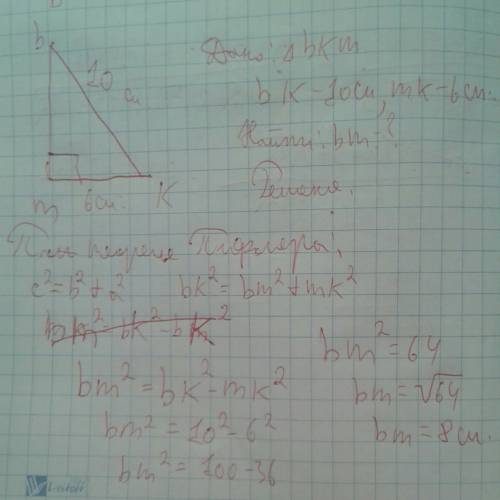 b
10 см
m 6см. K
Дано: Δ bKm
bK-10см, mK-6см.
Найти: bm-?
Решение.
теореме Пифагоры:
c²=b²+a² bK²=bm²+mK²
bm²=bK²-mK²
bm²=10²-6²
bm²=100-36
bm²=64
bm=√64
bm=8см.